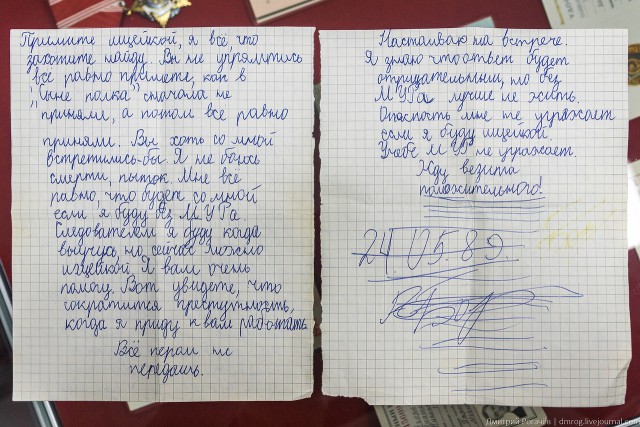 Примите ищейкой, я всё, что
захотите найду. Вы не упрямтись
все равно примете, как в
"Сыне полка" сначала не
приняли, а потом всё равно
приняли. Вы хоть со мной
встретились-бы. Я не боюсь
смерти, пыток. Мне всё
равно, что будет со мной
если я буду без М.У.Ра.
Следователем я буду когда
выучусь, но сейчас можно
ищейкой. Я вам очень
помогу. Вот увидете, что
сократится преступность,
когда я приду к вам работать
Всё пером не
передашь.
Настаиваю на встрече.
Я знаю что ответ будет
отрицательным, но без
М.У.Ра лучше не жить.
Опасность мне не угражает
если я буду ищейкой.
Учебе М.У.Р не угражает.
Жду везита
положительного!
24.05.89.
Дмитрий Рогачёв | dmrog.livejournal.com